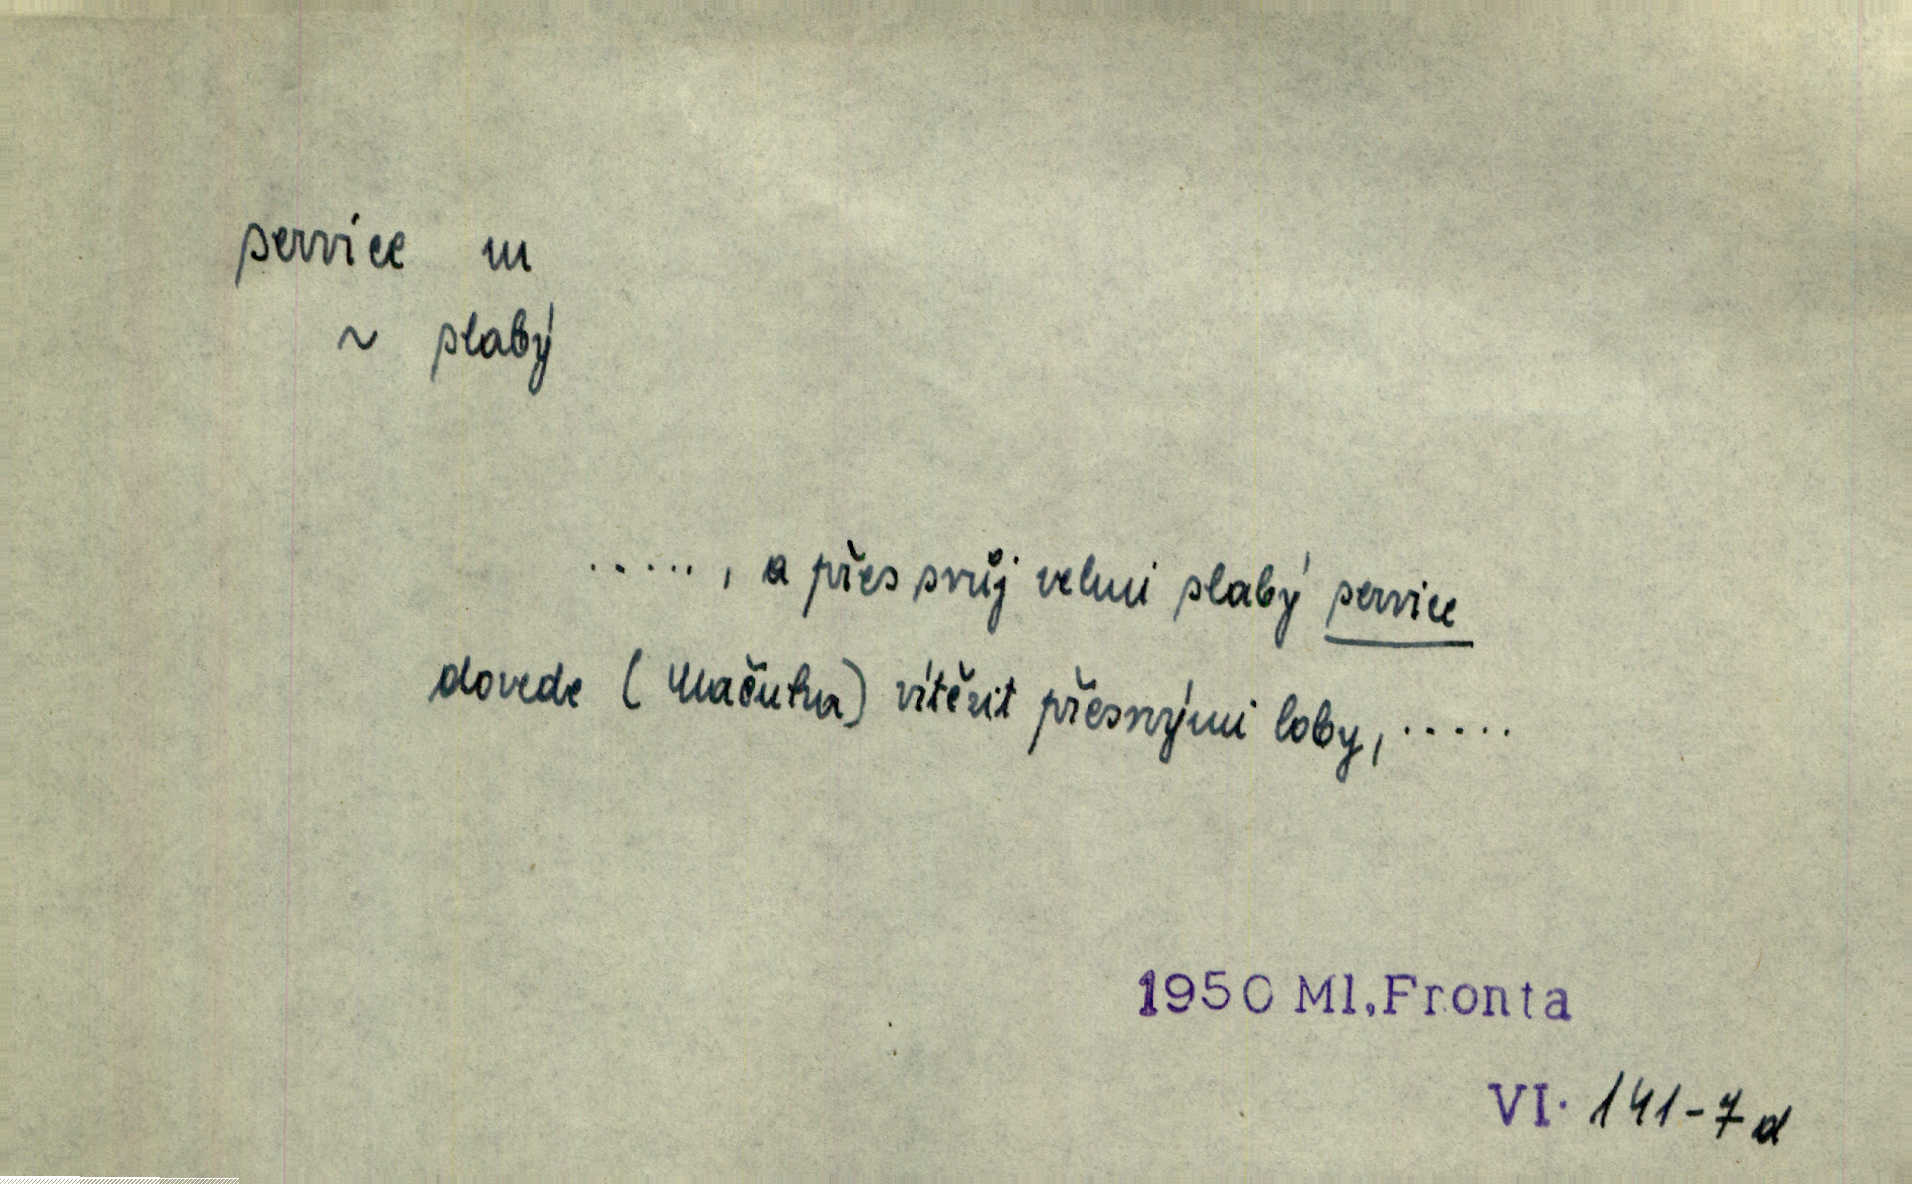 service m
~ slabý
....., a přes svůj velmi slabý service
dovede (Mačutka) vítězit přesnými loby, .....
1950 Ml. Fronta
VI. 141-7d